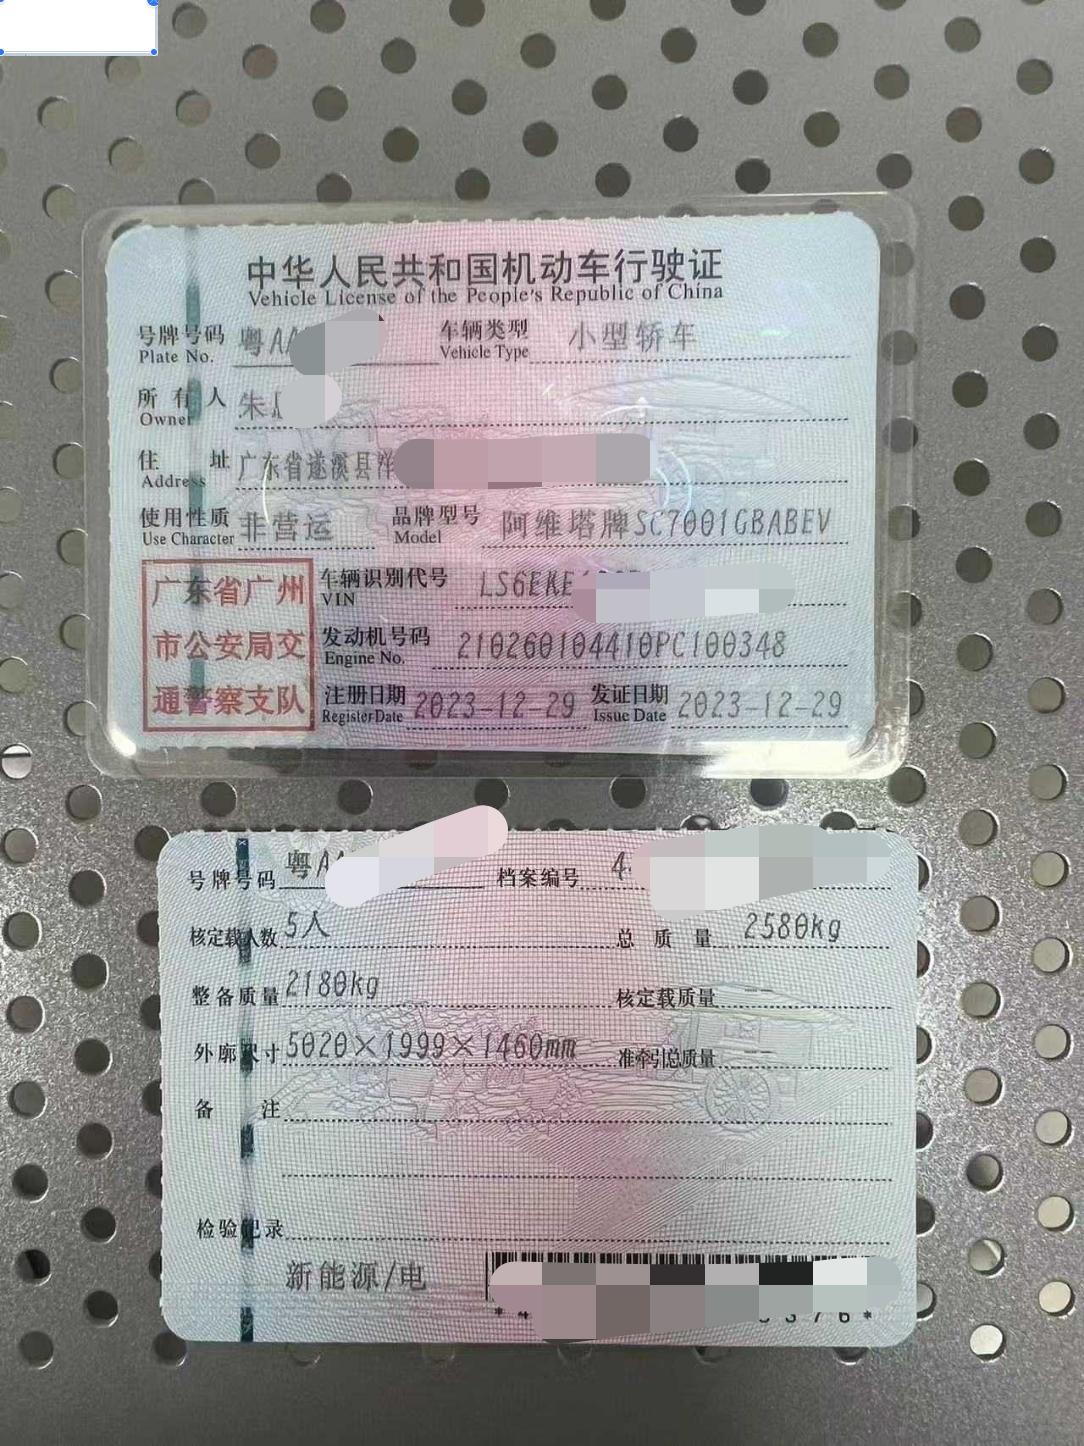 中华人民共和国机动车行驶证
Vehicle License of the People's Republic of China
号牌号码 粤A 车辆类型 小型轿车
Plate No. Vehicle Type
所有人 朱
Owner
住址 广东省遂溪县洋
Address
使用性质 非营运 品牌型号 阿维塔牌SC7001GBABEV
Use Character Model
广东省广州 车辆识别代号 LS6EKE
VIN
市公安局交 发动机号码 210260104410PC100348
Engine No.
通警察支队 注册日期 2023-12-29 发证日期 2023-12-29
Register Date Issue Date
号牌号码 粤A 档案编号 4
核定载人数 5人 总质量 2580kg
整备质量 2180kg 核定载质量 --
外廓尺寸 5020×1999×1460mm 准牵引总质量 --
备注
检验记录
新能源/电
*4 376*